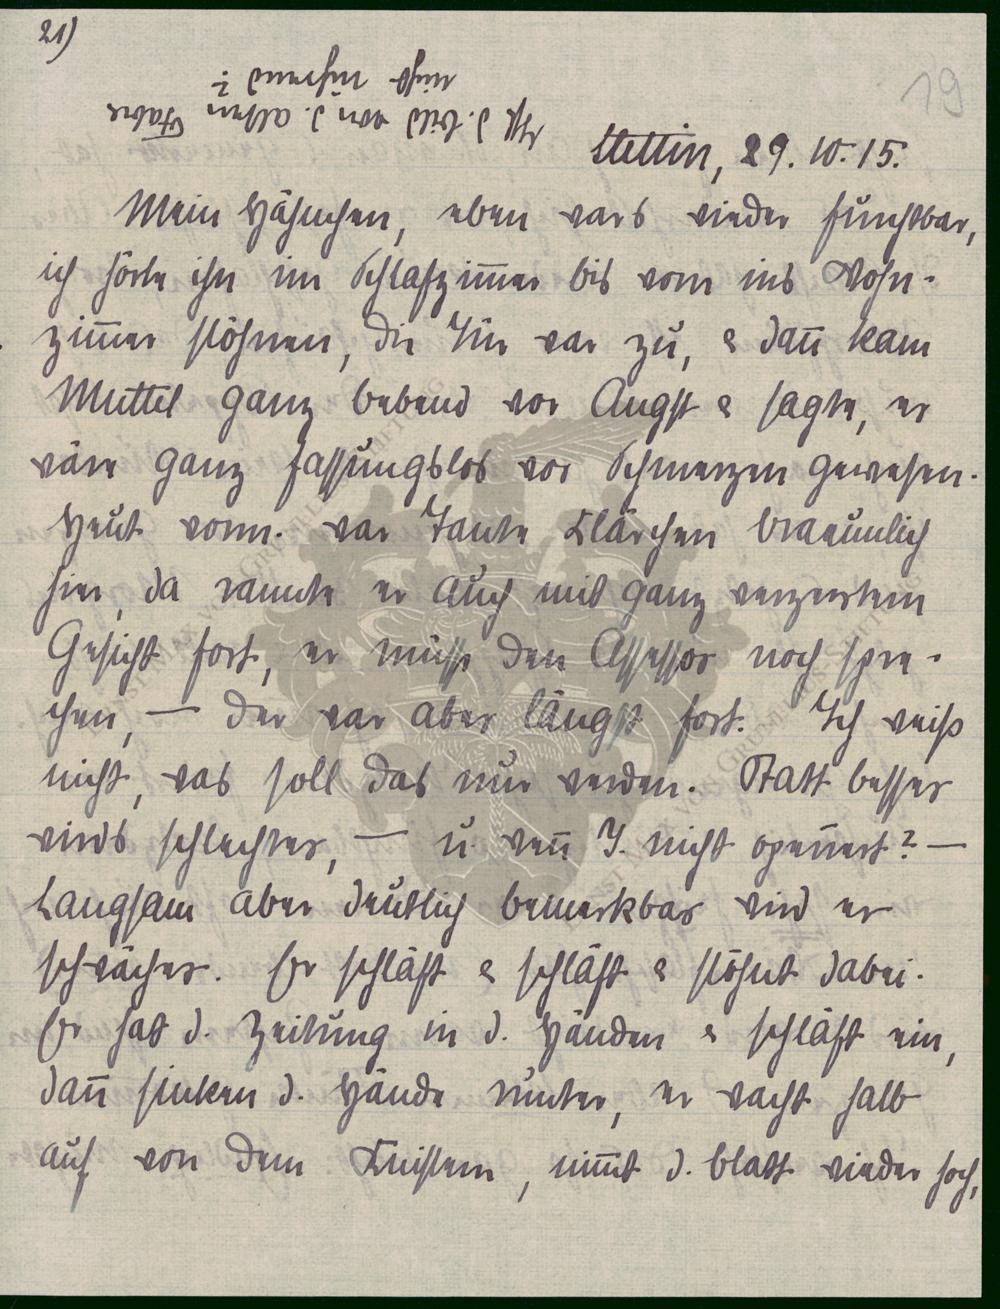 21)
19
Ist d. Bild von d. alten Fabre
nicht rührend?
Stettin, 29. 10. 15.
Mein Hähnchen, eben wars wieder furchtbar,
ich hörte ihn im Schlafzim̅er bis vorn ins Wohn-
zim̅er stöhnen, die Tür war zu, & dan̅ kam
Muttel ganz bebend vor Angst & sagte, er
wäre ganz fassungslos vor Schmerzen gewesen.
Heut vorm. war Tante Klärchen Braeunlich
hier, da rannte er auch mit ganz verzerrtem
Gesicht fort, er müsse den Assessor noch spre-
chen, — der war aber längst fort. Ich weiß
nicht, was soll das nur werden. Statt besser
wirds schlechter, — u. wen̅ I. nicht operiert? —
Langsam aber deutlich bemerkbar wird er
schwächer. Er schläft & schläft & stöhnt dabei.
Er hat d. Zeitung in d. Händen & schläft ein,
dan̅ sinken d. Hände runter, er wacht halb
auf von dem Knistern, nim̅t d. Blatt wieder hoch,